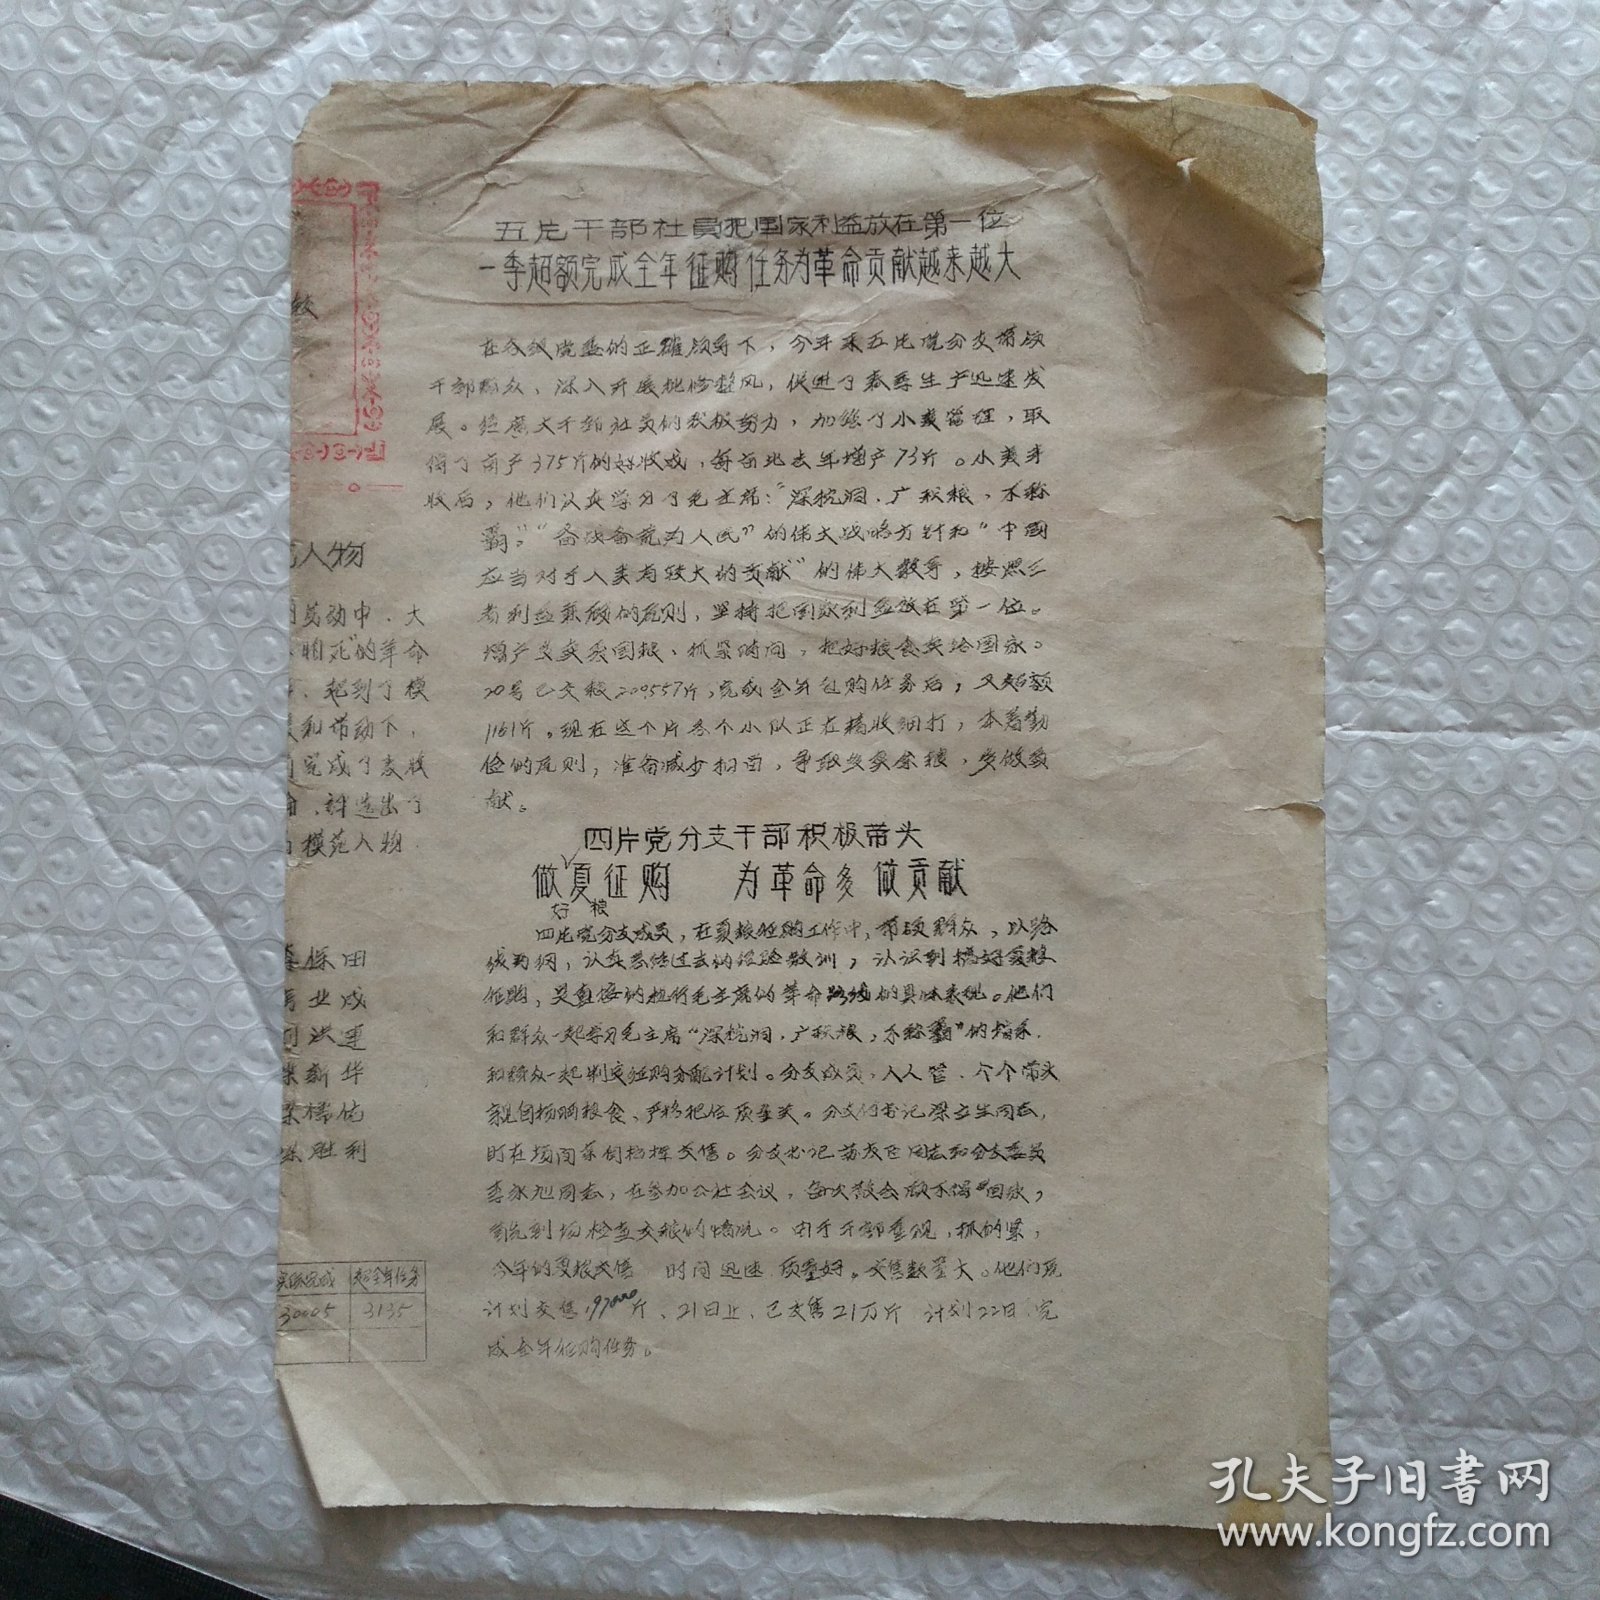 五片干部社员把国家利益放在第一位
一季超额完成全年征购任务为革命贡献越来越大
在各级党委的正确领导下，今年来五片党分支带领
干部群众、深入开展批修整风，促进了春季生产迅速发
展。经广大干部社员的积极努力，加强了小麦管理，取
得了亩产375斤的好收成，每亩比去年增产73斤。小麦
收后，他们认真学习了毛主席：“深挖洞、广积粮、不称
霸。”“备战备荒为人民”的伟大战略方针和“中国
应当对于人类有较大的贡献”的伟大教导，按照三
者利益兼顾的原则，坚持把国家利益放在第一位。
增产 国粮、抓紧时间，把好粮食卖给国家。
20号已交粮200557斤，完成全年征购任务后，又超额
1161斤。现在这个片各个小队正在精收细打，本着勤
俭的原则，准备减少 ，争取 余粮，多做贡
献。
四片党分支干部积极带头
做好夏粮征购 为革命多做贡献
四片党分支成员，在夏粮征购工作中，带领群众，以路
线为纲，认真总结过去的经验教训，认识到搞好夏粮
征购，是直接的执行毛主席的革命路线的具体表现。他们
和群众一起学习毛主席“深挖洞，广积粮，不称霸”的指示，
和群众一起制定征购分配计划。分支成员，人人管、个个带头
亲自扬晒粮食、严格把住质量关。分支付书记梁立生同志，
在场 指挥交售。分支书记 同志和分支委员
李永旭同志，在参加公社会议，每次散会 回家，
首先到场检查交粮的情况。由于干部重视，抓的紧，
今年的夏粮交售 时间迅速 质量好。交售数量大。他们原
计划交售197000斤、21日止，已交售21万斤 计划22日完
成全年征购任务。
较
人物
劳动中、大
死”的革命
、起到了模
和带动下，
完成了麦收
、评选出了
模范人物
保田
业成
洪连
新华
胜利
实际完成 超全年任务
30005 3135
孔夫子旧书网
www.kongfz.com